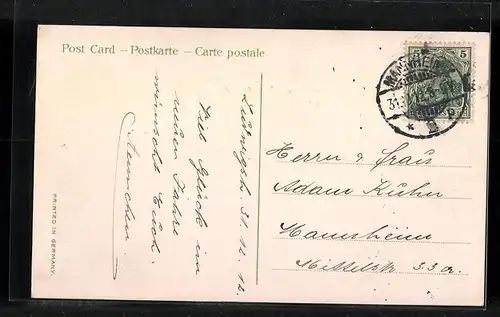 Post Card – Postkarte – Carte postale
5 5
MANNHEIM
31.
Ludwigsh. 31.12.12.
Viel Glück im
neuen Jahre
wünscht Euch
Aennchen.
Herrn & Frau
Adam Kuhn
Mannheim
Mittelstr. 33a.
PRINTED IN GERMANY.